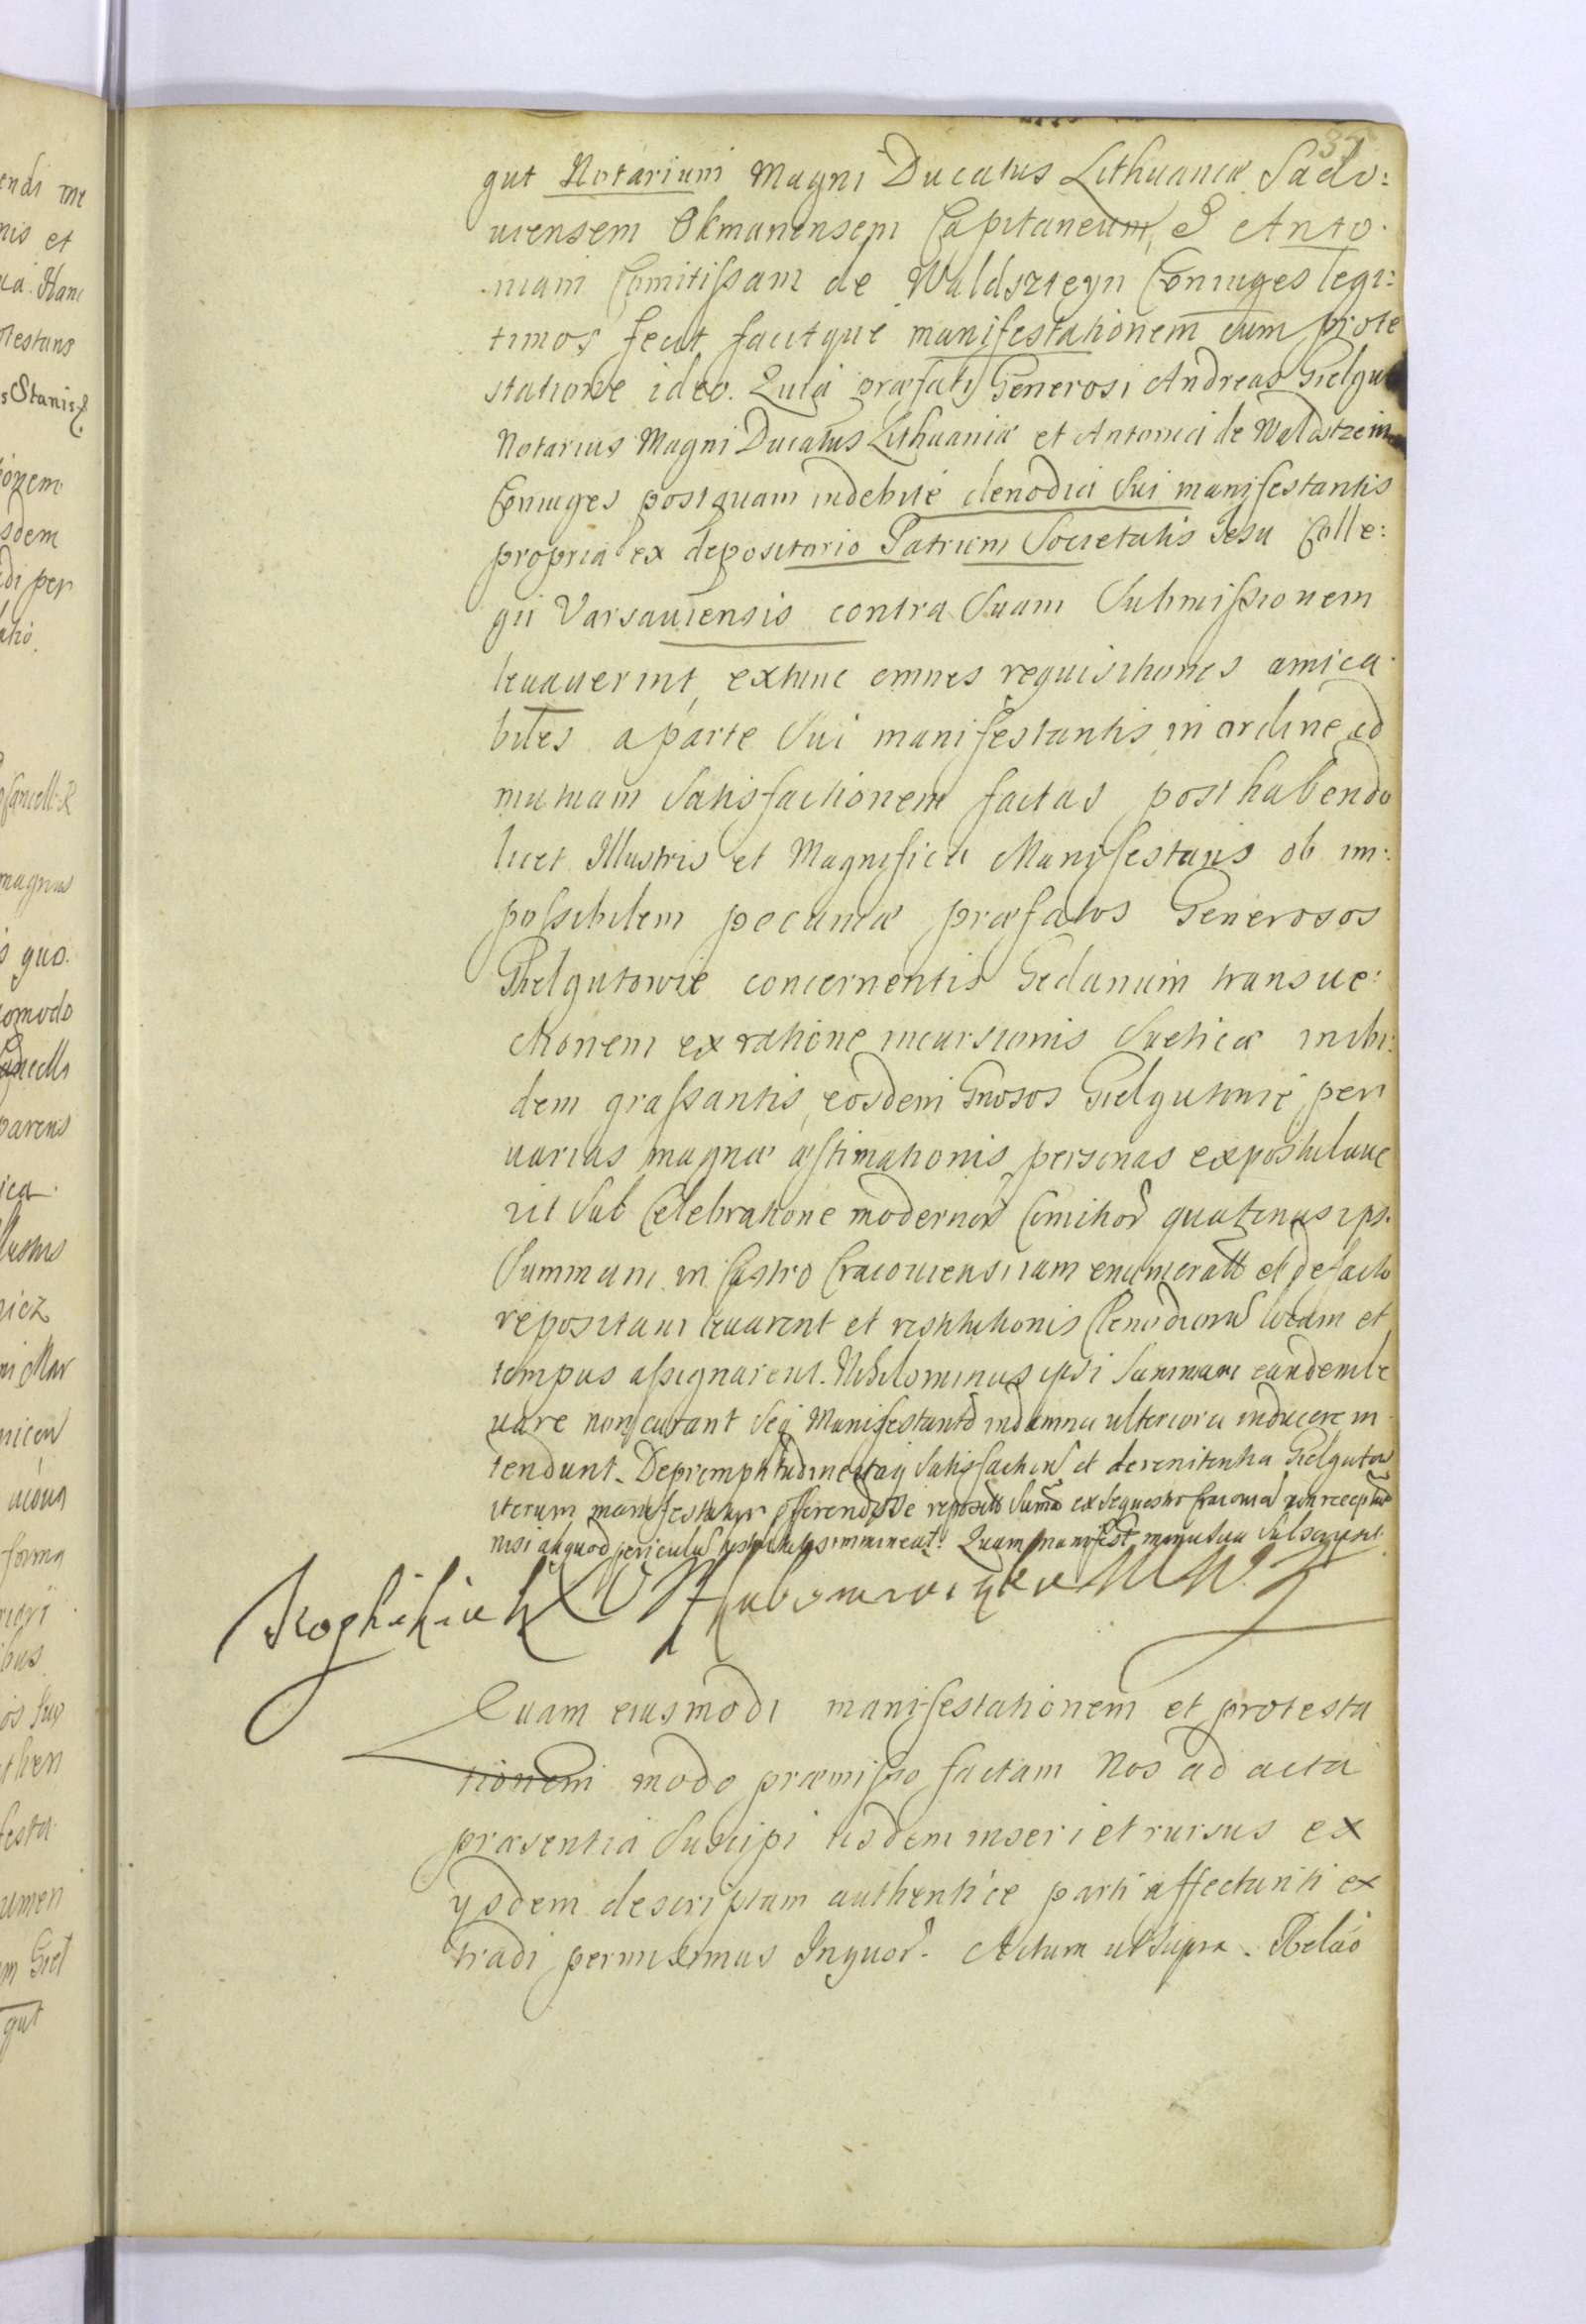 gut Notarium Magni Ducatus Lithuaniæ Sado:
uiensem Okmanensem Capitaneum, & Anto
niam Comitissam de Waldszteyn Coniuges legi:
timos fecit facitque manifestationem cum prote
statione ideo. Quia præfati Generosi Andreas Gielgut
Notarius Magni Ducatus Lithuaniæ et Antonia de Waldstzein
Coniuges postquam indebite clenodia Sui manifestantis
propria ex depositorio Patrum Societatis Jesu Colle:
gii Varsauiensis contra Suam Submissionem
leuauerint, extunc omnes requisitiones amica
biles a parte Sui manifestantis in ordine ad
mutuam Satisfactionem factas posthabendo
licet Illustris et Magnifica Manifestans ob im:
possibilem pecuniæ præfatos Generosos
Gielgutowie concernentis Gedanum transue:
ctionem ex ratione incursionis Sueticæ inibi:
dem grassantis, eosdem Gnosos Gielgutowie per
uarias magnæ æstimationis personas expostulaue
rit Sub Celebratione modernor Comitior quatenus ips.
Summam in Castro Cracouiensi iam enumeratt et de facto
repositam leuarent et restitutionis Clenodioru locum et
tempus assignarent. Nihilominus ipsi Summam eandem le
uare non curant Seq Manifestante in damna ulteriora inducere in
tendunt. De promptitudine itaq Satisfactionis et de renitentia Gielgutow
iterum manifestatur offerendo Se reposit Suma ex Sequestro Cracouien non receptur
nisi aliquod periculu imminent. Quam manifest manu Sua Subscripsit.
Quam eiusmodi manifestationem et protesta
tionem modo præmisso factam Nos ad acta
præsentia Suscipi iisdem inseri et rursus ex
ysdem descriptam authentice parti affectanti ex
tradi permisimus Inquor. Actum ut Supra. Relao